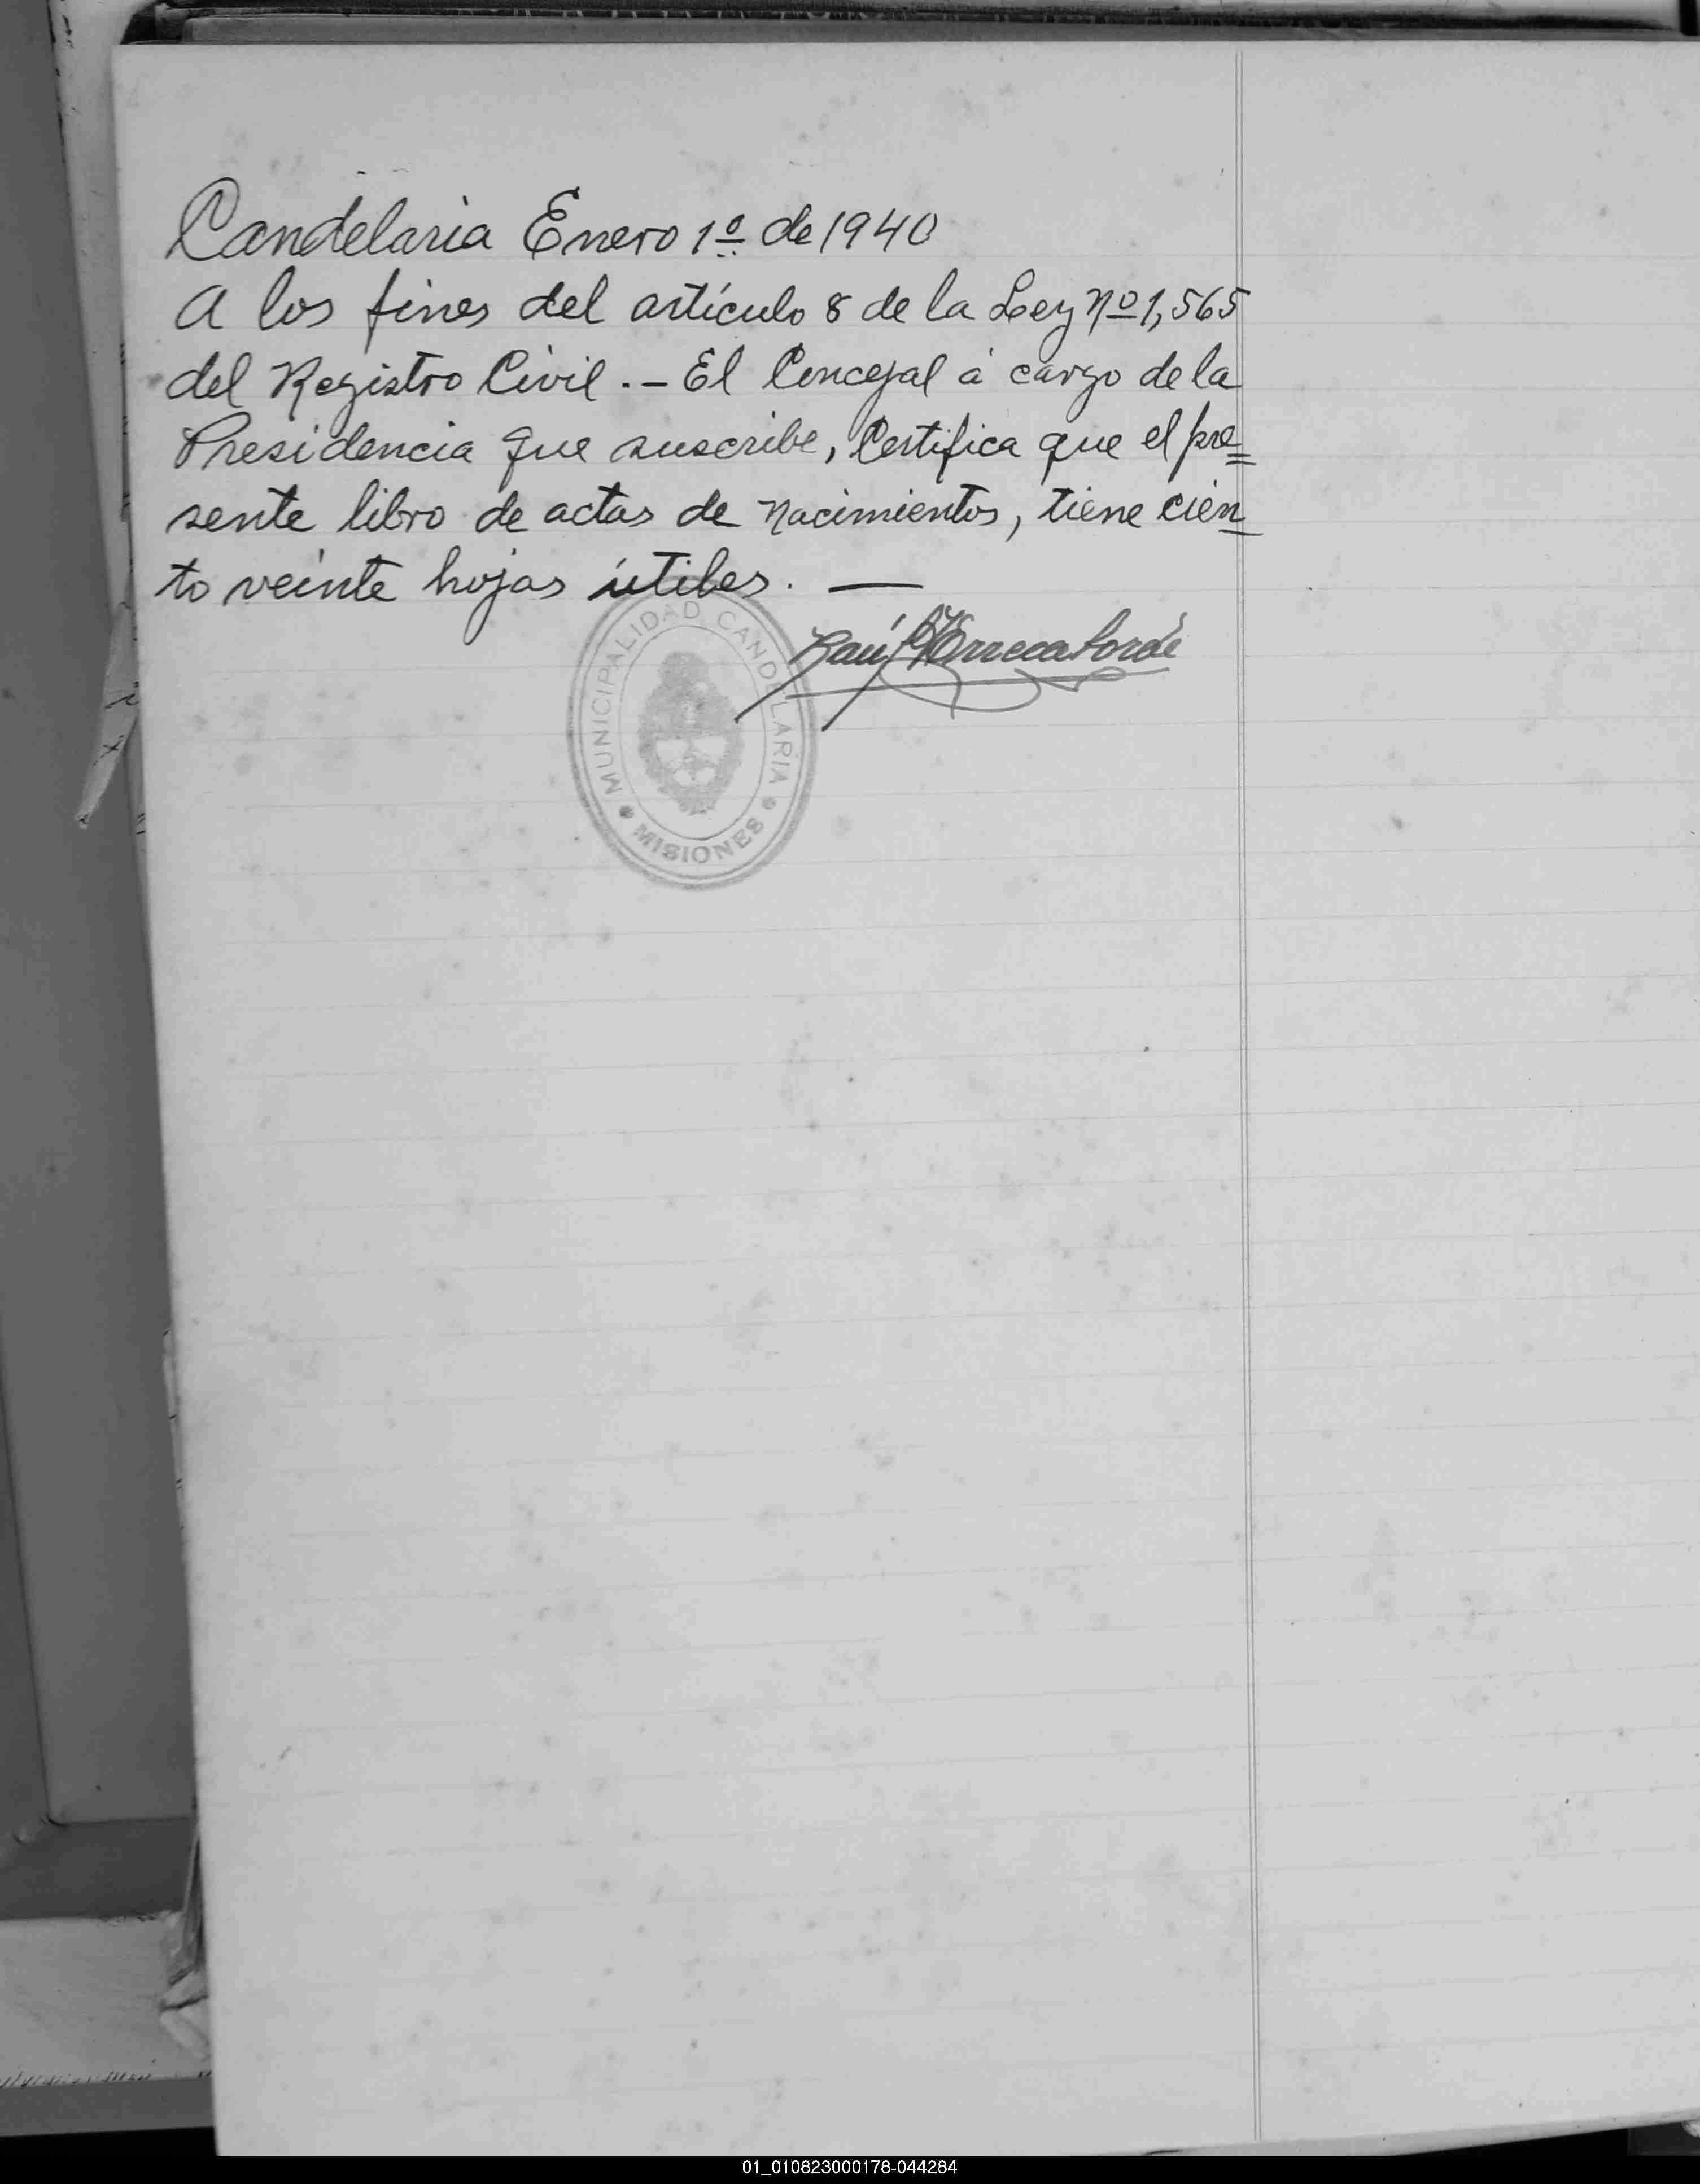 Candelaria Enero 1º de 1940
A los fines del artículo 8 de la Ley Nº 1,565
del Registro Civil.- El Concejal á cargo de la
Presidencia que suscribe, Certifica que el pre=
sente libro de actas de nacimientos, tiene cien-
to veinte hojas útiles. —
Raúl
MUNICIPALIDAD CANDELARIA
MISIONES
01_010823000178-044284